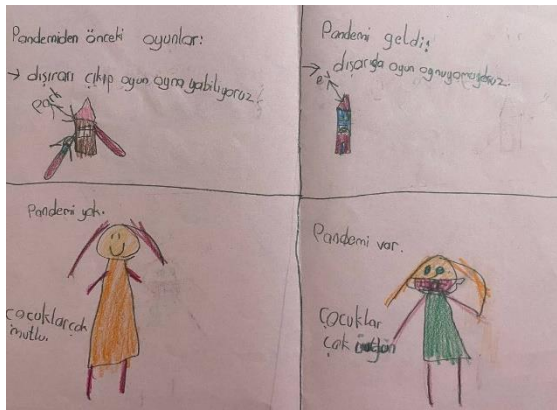 Pandemiden önceki oyunlar:
→ dışarı çıkıp oyun oynayabiliyoruz.
park
Pandemi geldi:
→ dışarıda oyun oynuyamıyoruz.
ev
Pandemi yok.
Çocuklar çok
mutlu.
Pandemi var.
Çocuklar
çok üzgün